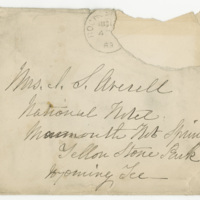 Mrs. A. S. Averell
National Hotel
Mammouth Hot Spring
Yellow Stone Park
Wyoming Ter